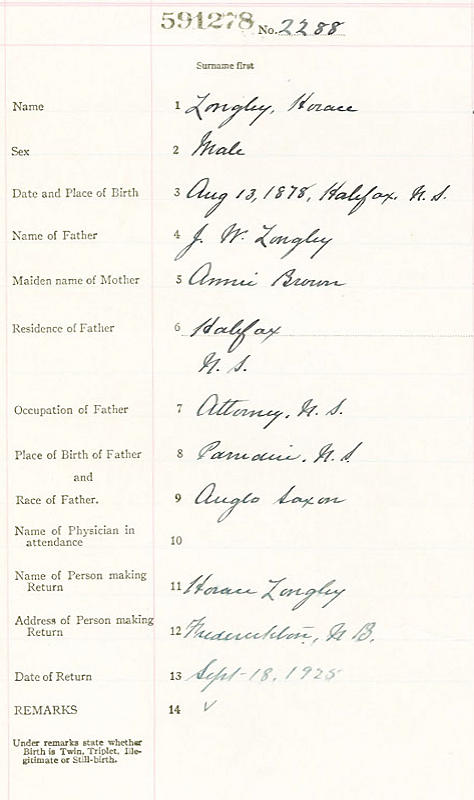 591278 No. 2288
Surname first
Name 1 Longley, Horace
Sex 2 Male
Date and Place of Birth 3 Aug 13, 1878, Halifax. N. S.
Name of Father 4 J. W. Longley
Maiden name of Mother 5 Annie Brown
Residence of Father 6 Halifax
N. S.
Occupation of Father 7 Attorney, N. S.
Place of Birth of Father 8 Paradise, N. S.
and
Race of Father. 9 Anglo Saxon
Name of Physician in
attendance 10
Name of Person making
Return 11 Horace Longley
Address of Person making
Return 12 Fredericton, N B.
Date of Return 13 Sept-18, 1925
REMARKS 14 √
Under remarks state whether
Birth is Twin, Triplet, Ille-
gitimate or Still-birth.